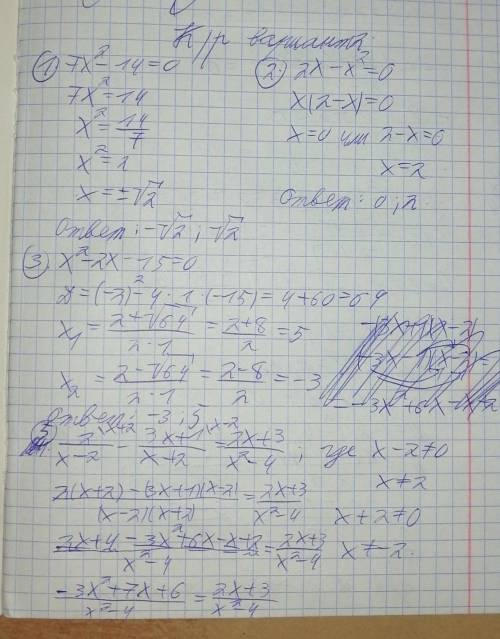 К/р вариант 2.
① 7x² - 14 = 0
7x² = 14
x² = 14/7
x² = 2
x = ±√2
Ответ: -√2; √2
② 2x - x² = 0
x(2-x) = 0
x=0 или 2-x=0
x=2
Ответ: 0; 2.
③ x² - 2x - 15 = 0
D = (-2)² - 4·1·(-15) = 4+60 = 64
x₁ = (2+√64)/(2·1) = (2+8)/2 = 5
x₂ = (2-√64)/(2·1) = (2-8)/2 = -3
Ответ: -3; 5
5. 2/(x-2) - (3x+1)/(x+2) = (2x+3)/(x²-4), где x-2≠0
x≠2
(2(x+2) - (3x+1)(x-2))/((x-2)(x+2)) = (2x+3)/(x²-4)
x+2≠0
(2x+4 - 3x²+6x-x+2)/(x²-4) = (2x+3)/(x²-4)
x≠-2.
(-3x²+7x+6)/(x²-4) = (2x+3)/(x²-4)